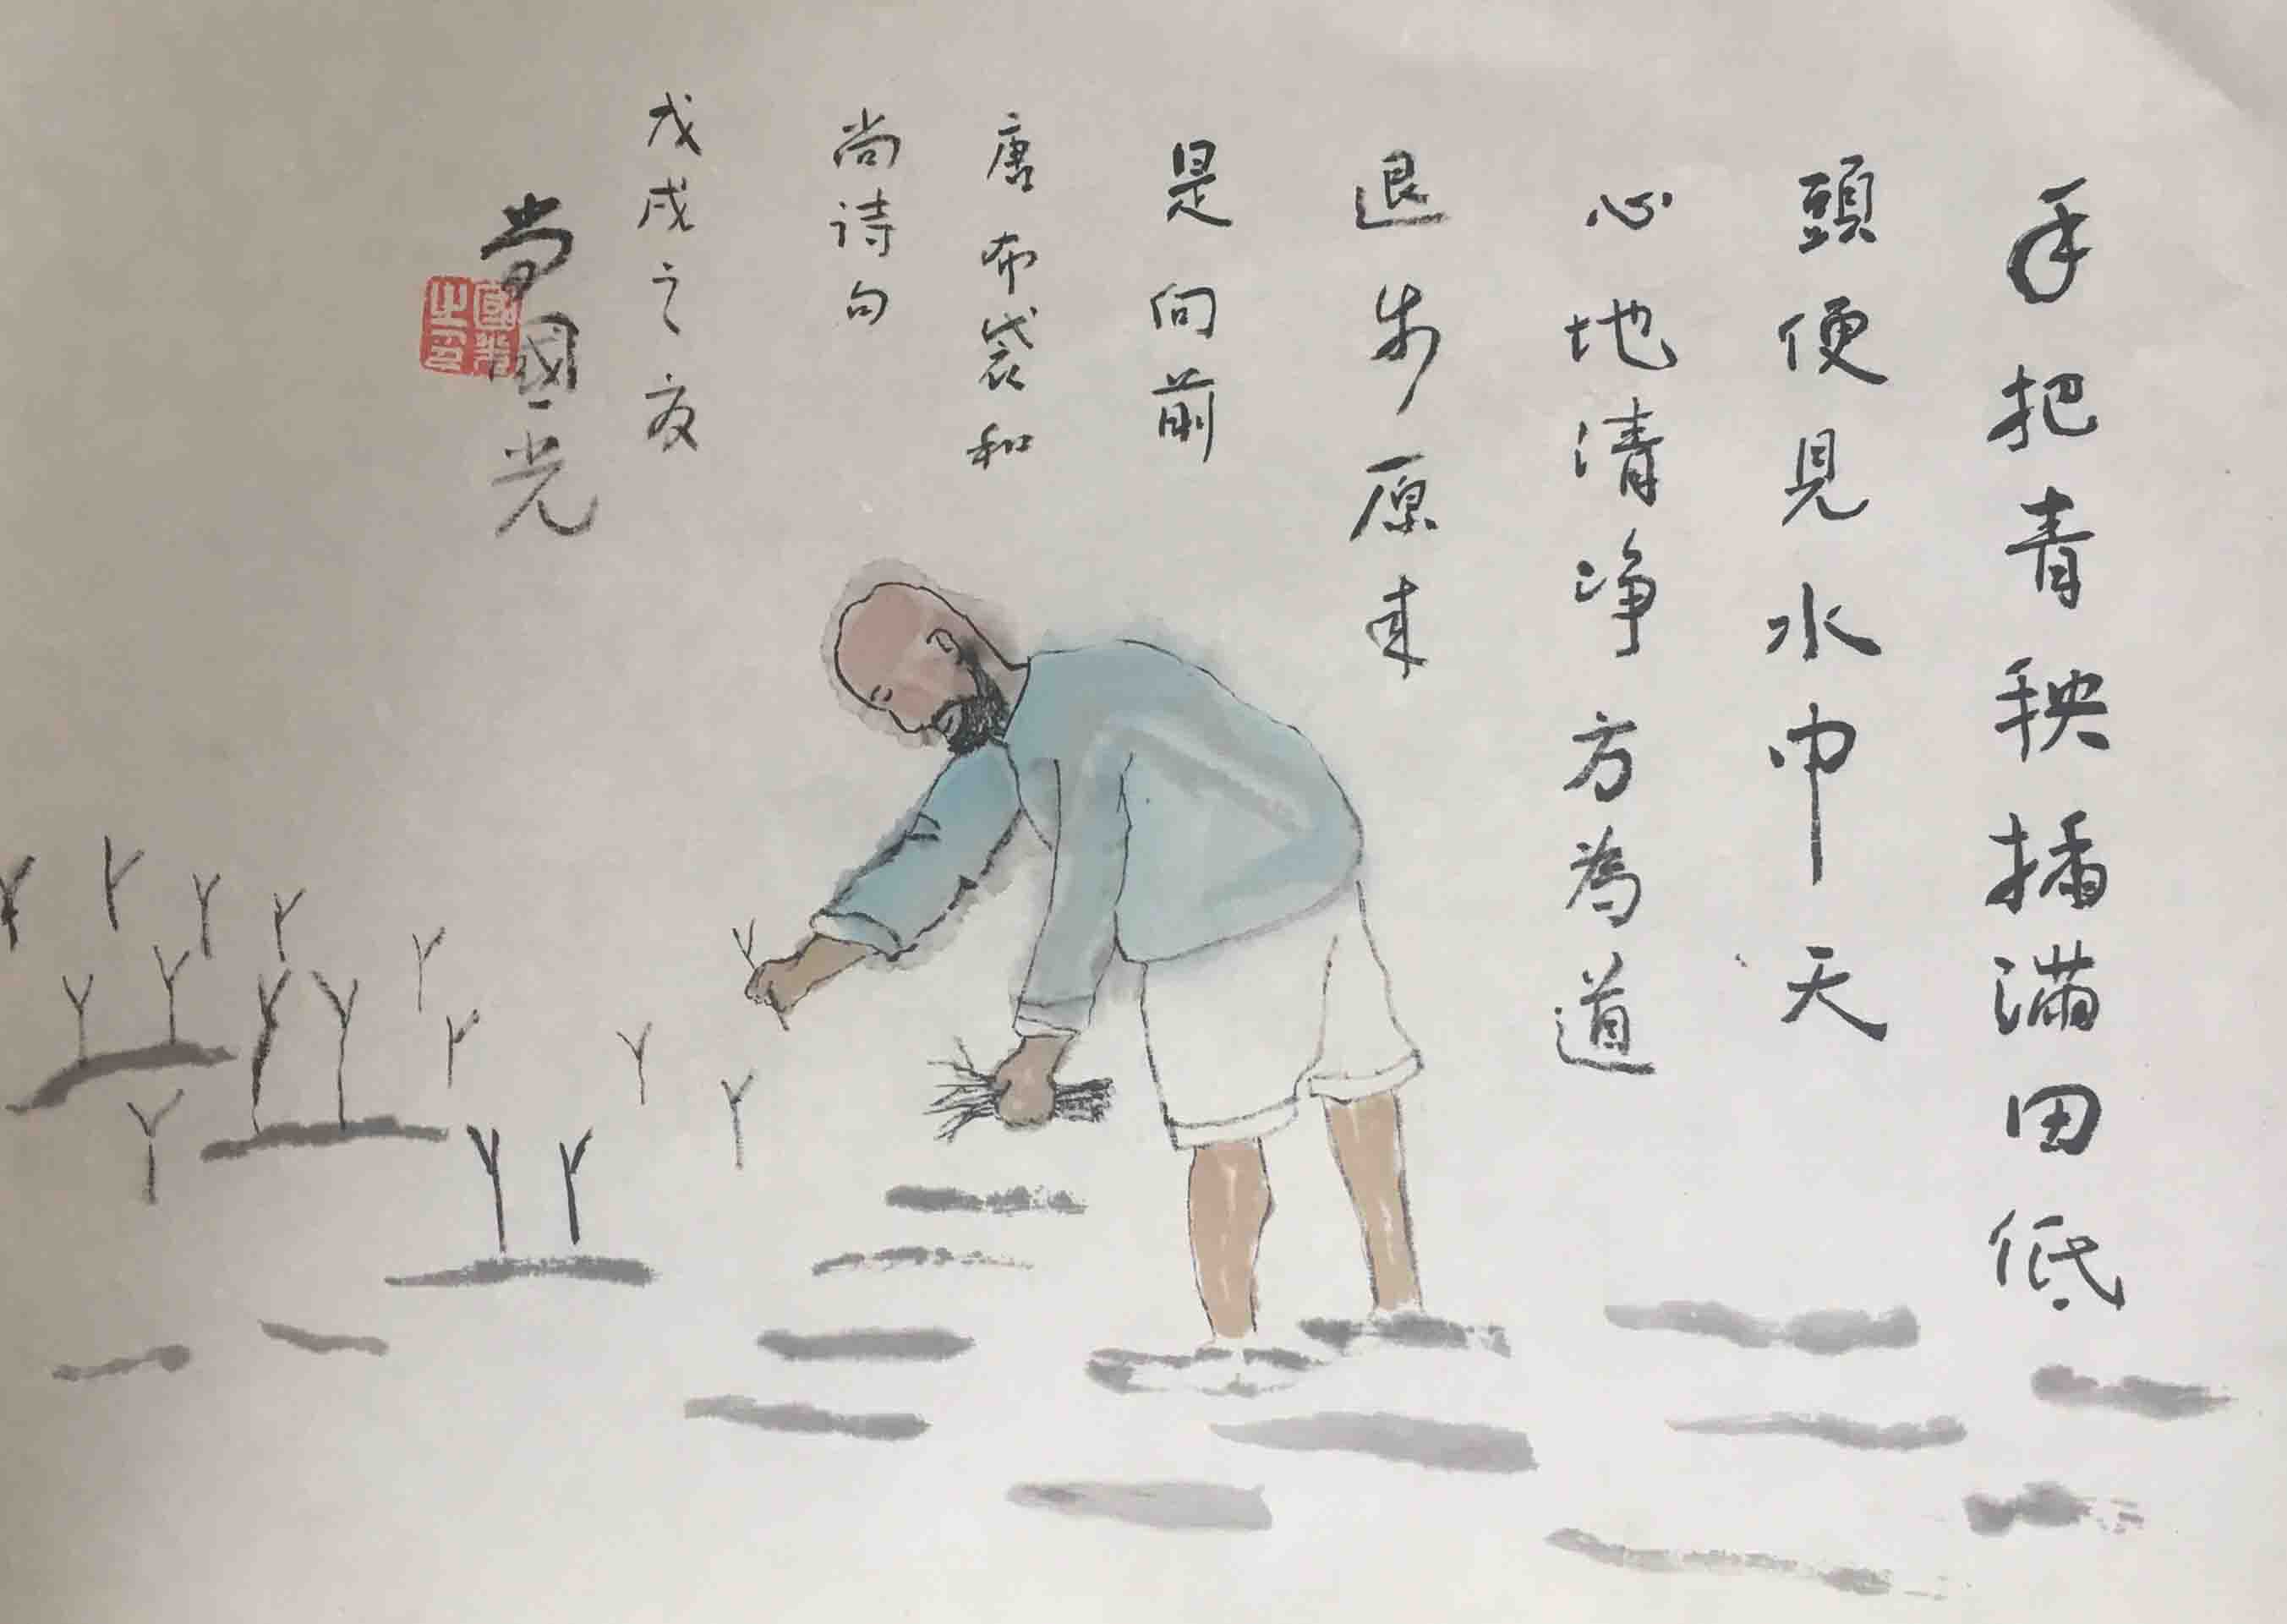 手把青秧插满田低
頭便見水中天
心地清净方為道
退步原来
是向前
唐布袋和
尚诗句
戊戌之夜
尚國光